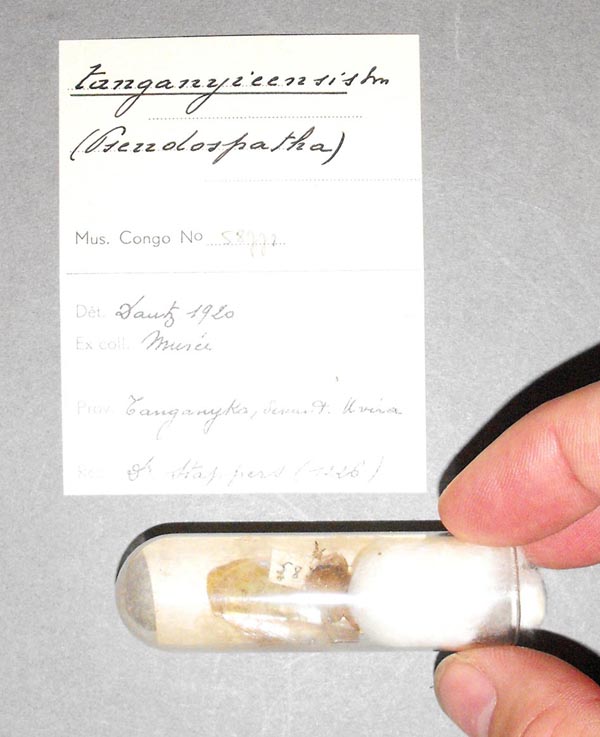 tanganyicensis Sm
(Pseudospatha)
Mus. Congo No 58772
Dét. Dautz 1920
Ex coll. Musée
Prov. Tanganyka, d'Uvira
Rec. Dr Stappers (1226)
58